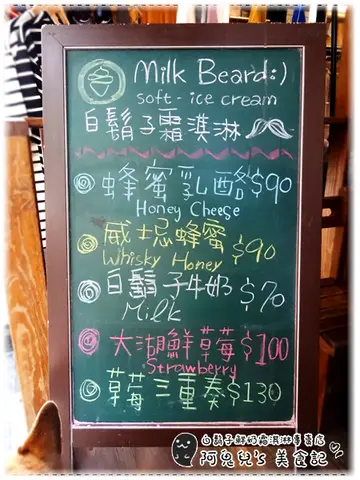 Milk Beard:)
soft-ice cream
白鬍子霜淇淋
蜂蜜乳酪$90
Honey Cheese
威士忌蜂蜜$90
Whisky Honey
白鬍子牛奶$70
Milk
大湖鮮草莓$100
Strawberry
草莓三重奏$130
阿兔兒's 美食記